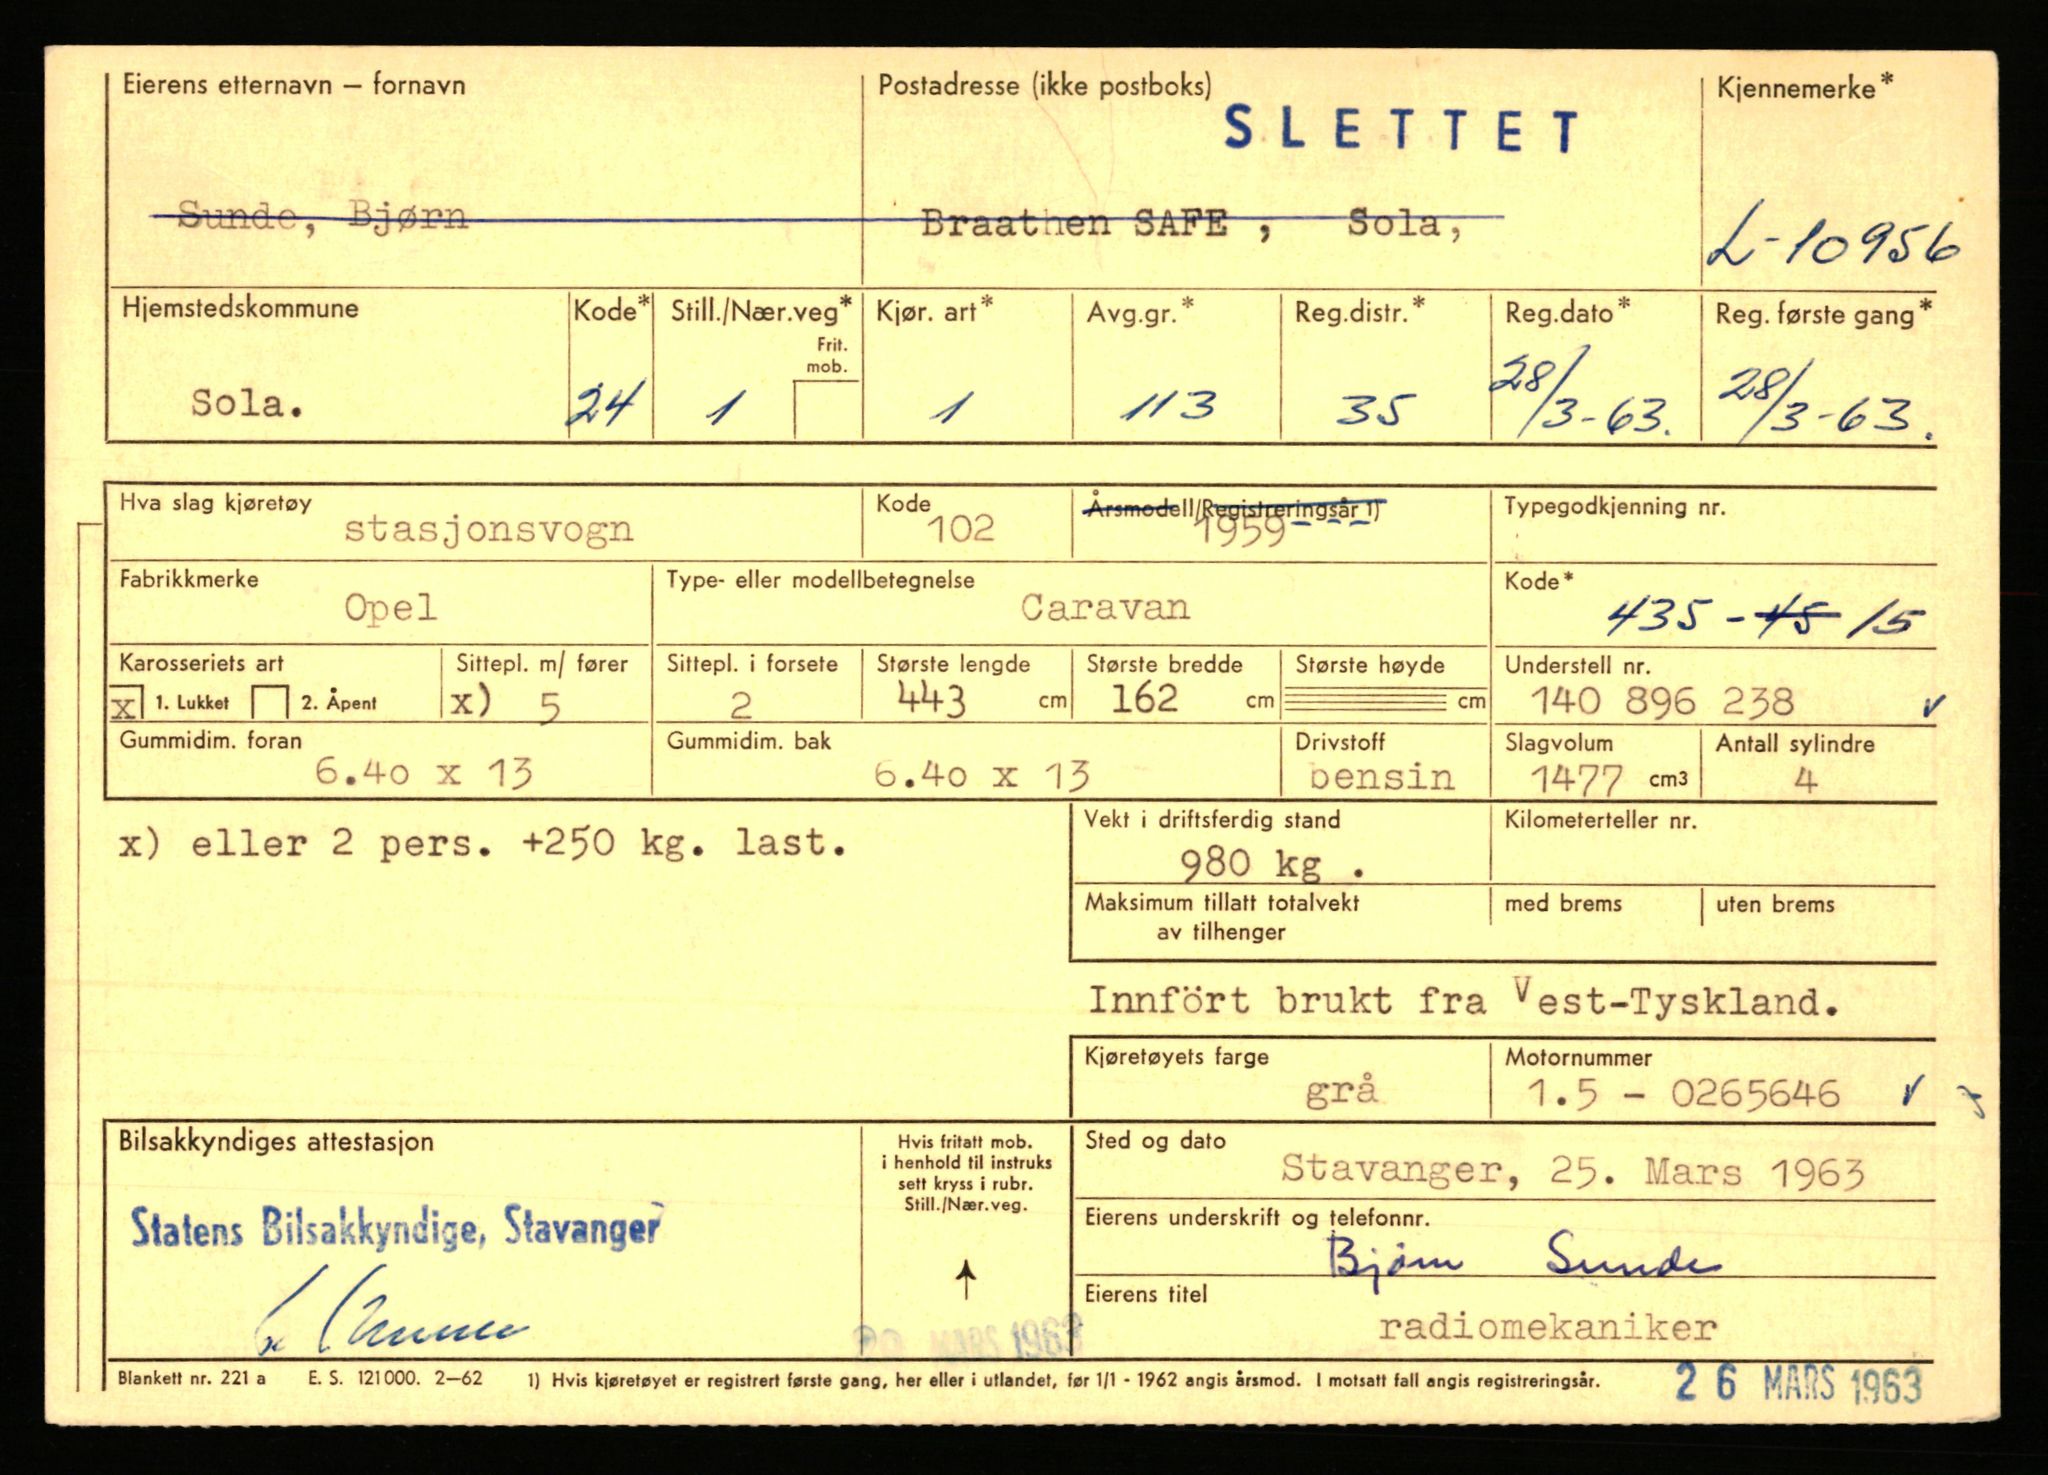 Eierens etternavn – fornavn
Postadresse (ikke postboks)
Kjennemerke*
SLETTET
Sunde, Bjørn
Braathen SAFE , Sola,
L-10956
Hjemstedskommune
Kode*
Still./Nær.veg*
Frit.
mob.
Kjør. art*
Avg.gr.*
Reg.distr.*
Reg.dato*
Reg. første gang*
Sola.
24
1
1
113
35
28/3-63.
28/3-63.
Hva slag kjøretøy
stasjonsvogn
Kode
102
Årsmodell/Registreringsår 1)
1959
Typegodkjenning nr.
Fabrikkmerke
Opel
Type- eller modellbetegnelse
Caravan
Kode*
435-45 15
Karosseriets art
x 1. Lukket 2. Åpent
Sittepl. m/ fører
x) 5
Sittepl. i forsete
2
Største lengde
443 cm
Største bredde
162 cm
Største høyde
cm
Understell nr.
140 896 238
Gummidim. foran
6.40 x 13
Gummidim. bak
6.40 x 13
Drivstoff
bensin
Slagvolum
1477 cm3
Antall sylindre
4
x) eller 2 pers. +250 kg. last.
Vekt i driftsferdig stand
980 kg .
Kilometerteller nr.
Maksimum tillatt totalvekt
av tilhenger
med brems
uten brems
Innfört brukt fra Vest-Tyskland.
Kjøretøyets farge
grå
Motornummer
1.5 - 0265646
Bilsakkyndiges attestasjon
Statens Bilsakkyndige, Stavanger
Hvis fritatt mob.
i henhold til instruks
sett kryss i rubr.
Still./Nær.veg.
MARS 1963
Sted og dato
Stavanger, 25. Mars 1963
Eierens underskrift og telefonnr.
Bjørn Sunde
Eierens titel
radiomekaniker
Blankett nr. 221 a E. S. 121000. 2–62 1) Hvis kjøretøyet er registrert første gang, her eller i utlandet, før 1/1 - 1962 angis årsmod. I motsatt fall angis registreringsår.
26 MARS 1963